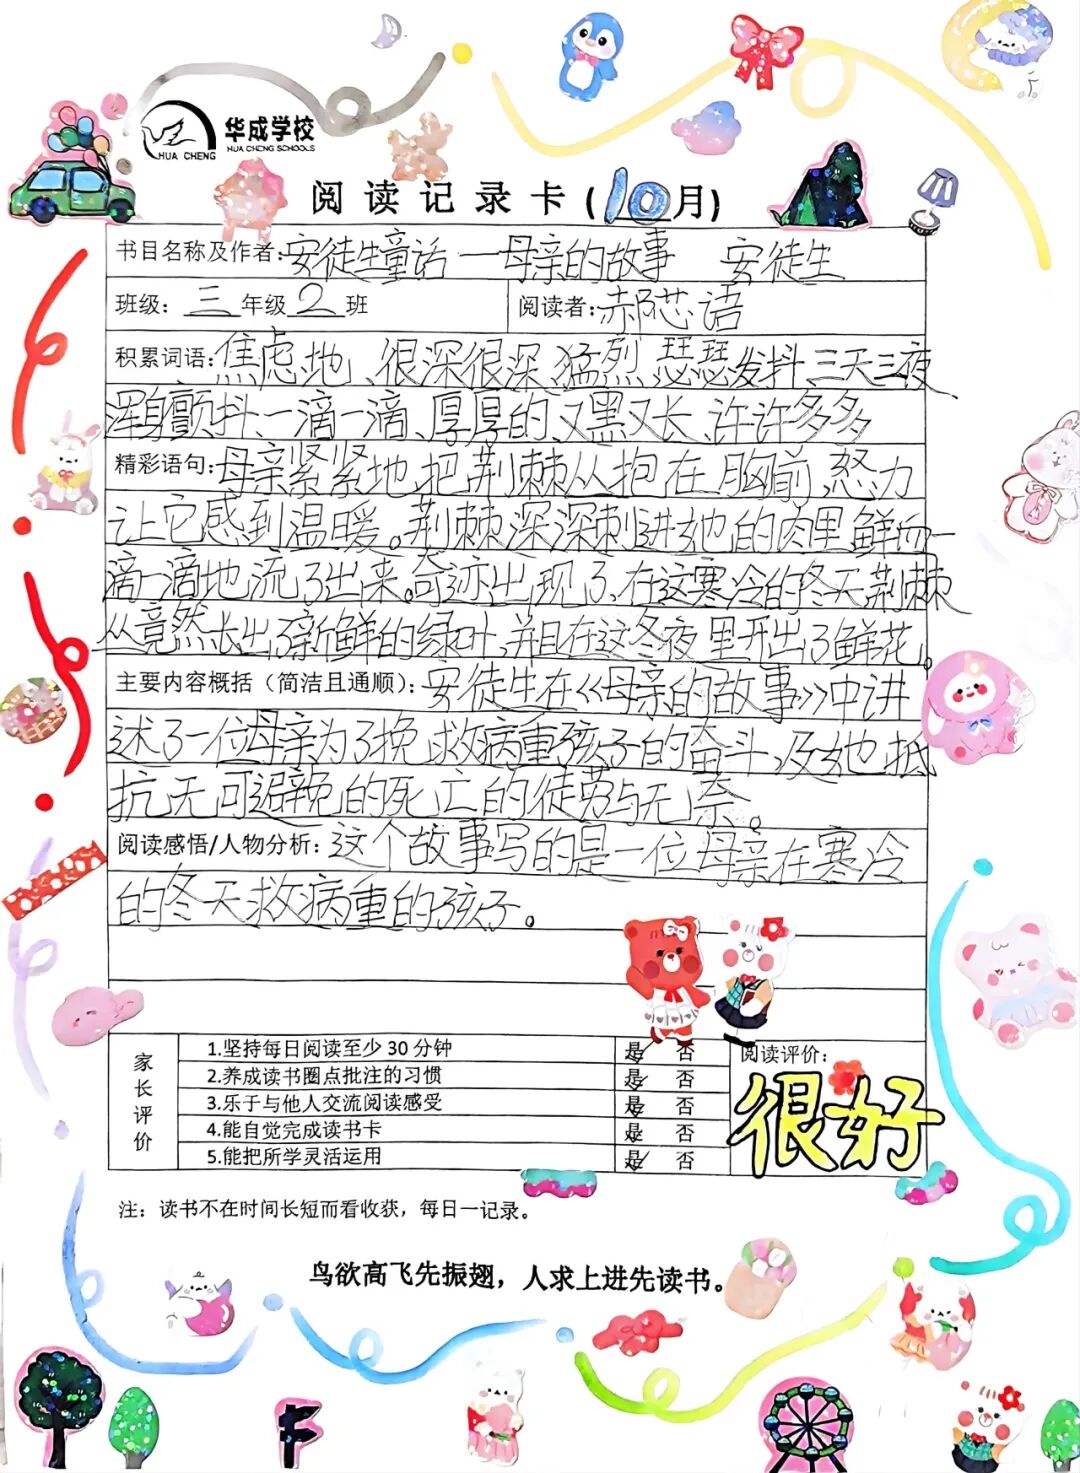 华成学校
HUA CHENG SCHOOLS
HUA CHENG
阅读记录卡（10月）
书目名称及作者：安徒生童话一母亲的故事 安徒生
班级：三年级2班 阅读者：郝芯语
积累词语：焦虑地、很深很深、猛烈、瑟瑟发抖、三天三夜、
浑身颤抖、一滴一滴、厚厚的、又黑又长、许许多多
精彩语句：母亲紧紧地把荆棘从抱在胸前，怒力
让它感到温暖。荆棘深深刺进她的肉里鲜血一
滴一滴地流了出来。奇迹出现了、在这寒冷的冬天荆棘
从竟然长出了新鲜的绿叶，并且在这冬夜里开出了鲜花。
主要内容概括（简洁且通顺）：安徒生在《母亲的故事》中讲
述了一位母亲为了挽救病重孩子的奋斗，及她抵
抗无可避免的死亡的徒劳与无奈。
阅读感悟/人物分析：这个故事写的是一位母亲在寒冷
的冬天救病重的孩子。
家长评价
1.坚持每日阅读至少30分钟 是 否
2.养成读书圈点批注的习惯 是 否
3.乐于与他人交流阅读感受 是 否
4.能自觉完成读书卡 是 否
5.能把所学灵活运用 是 否
阅读评价：
很好
注：读书不在时间长短而看收获，每日一记录。
鸟欲高飞先振翅，人求上进先读书。